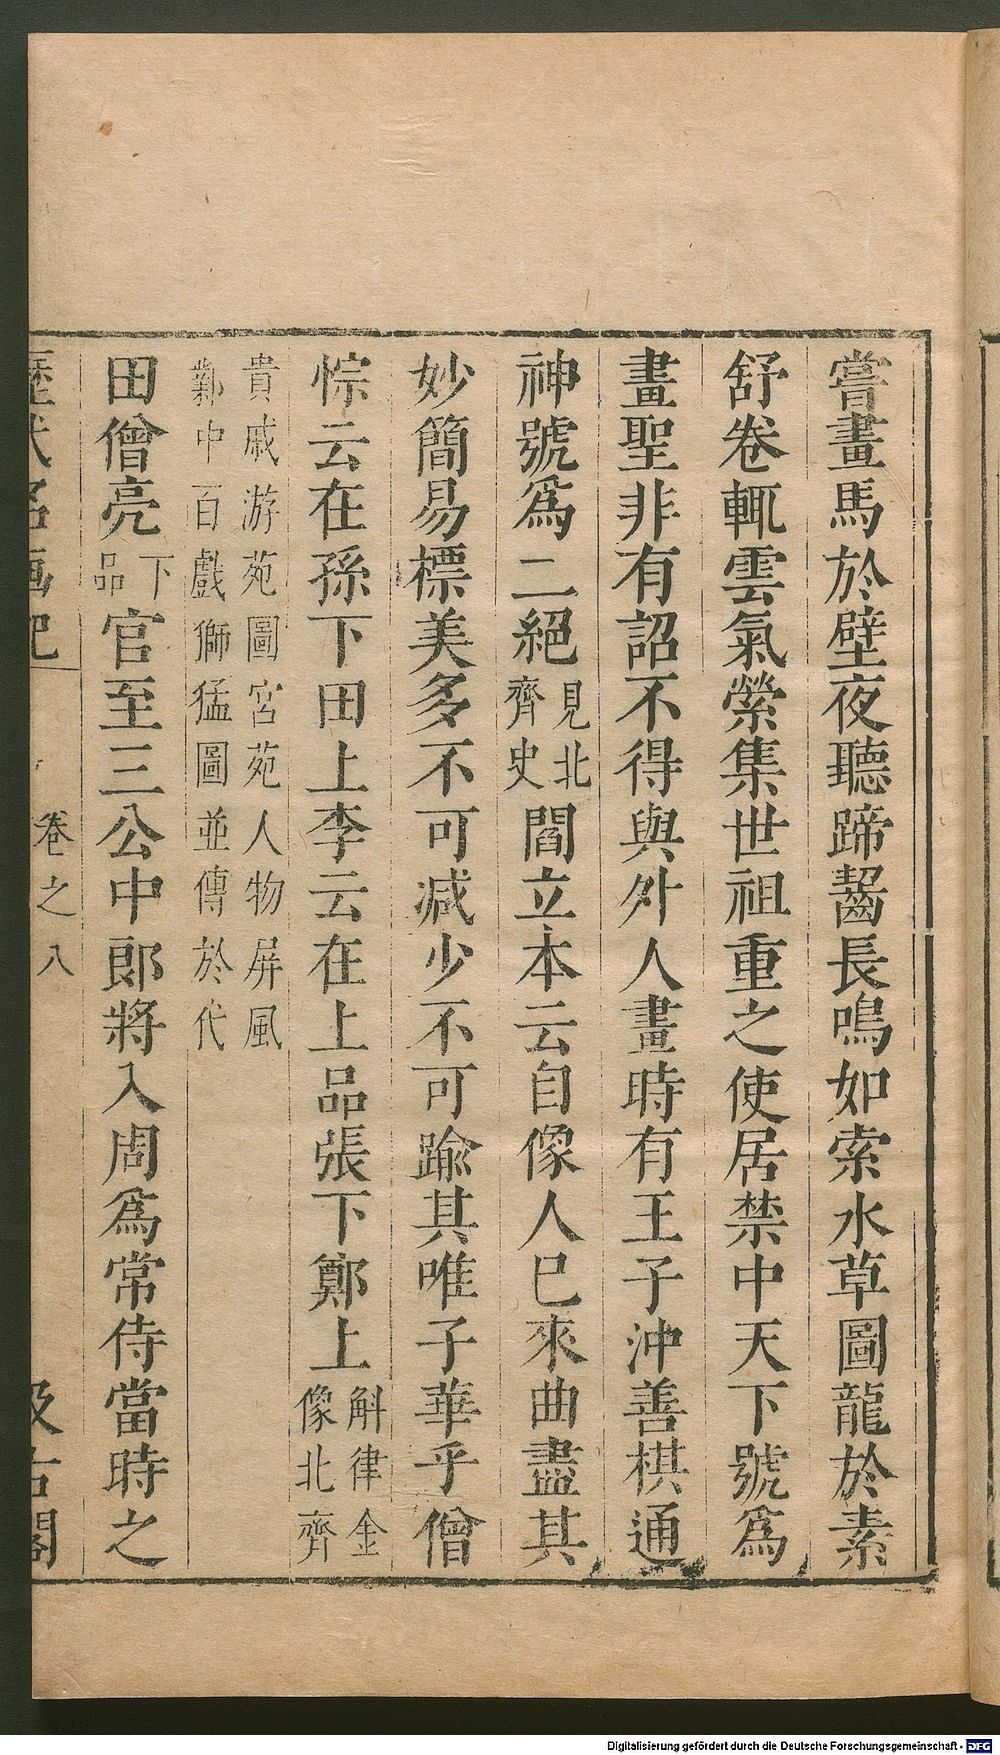 嘗畫馬於壁夜聽蹄齧長鳴如索水草圖龍於素
舒卷輒雲氣縈集世祖重之使居禁中天下號爲
畫聖非有詔不得與外人畫時有王子沖善棋通
神號爲二絕見北齊史閻立本云自像人已來曲盡其
妙簡易標美多不可减少不可踰其唯子華乎僧
悰云在孫下田上李云在上品張下鄭上斛律金像北齊
貴戚游苑圖宮苑人物屏風
鄴中百戲獅猛圖並傳於代
田僧亮下品官至三公中郎將入周爲常侍當時之
歷代名画記 卷之八 汲古閣
Digitalisierung gefördert durch die Deutsche Forschungsgemeinschaft - DFG